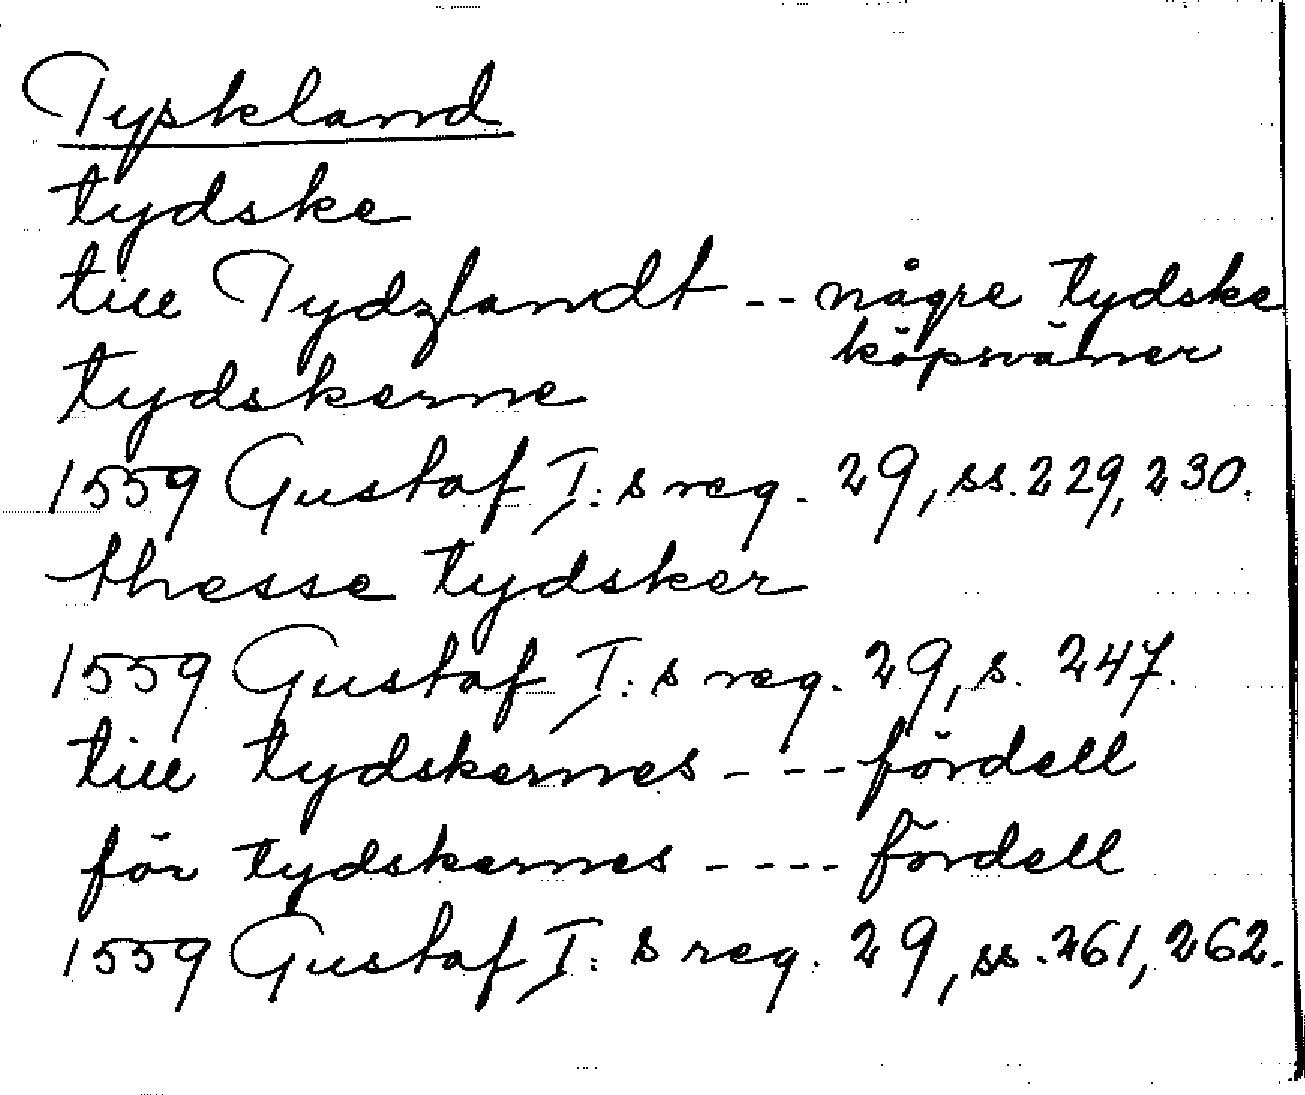 Tyskland
tydske
till Tydzlandt -- någre tydske
köpsväner
tydskerne
1559 Gustaf I:s reg. 29, ss. 229, 230.
thesse tydsker
1559 Gustaf I:s reg. 29, s. 247.
till tydskernes - -- fördell
för tydskernes ---- fördell
1559 Gustaf I:s reg. 29, ss. 261, 262.